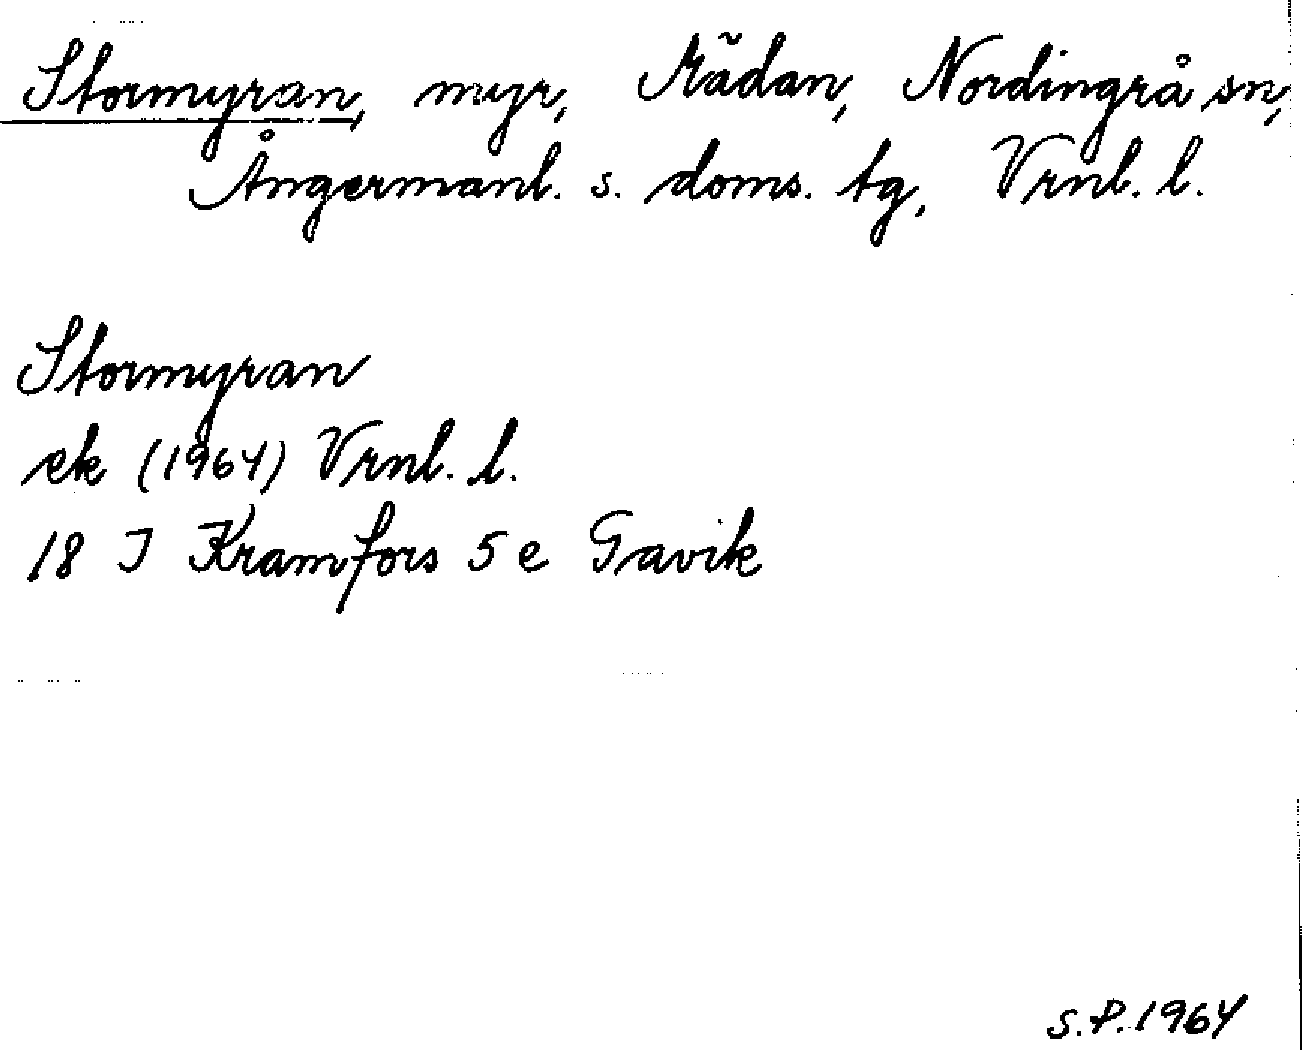 Stormyran, myr, Mädan, Nordingrå sn,
Ångermanl. s. doms. tg, Vrnl. l.
Stormyran
ek (1964) Vrnl. l.
18 I Kramfors 5 e Gavik
S.P. 1964